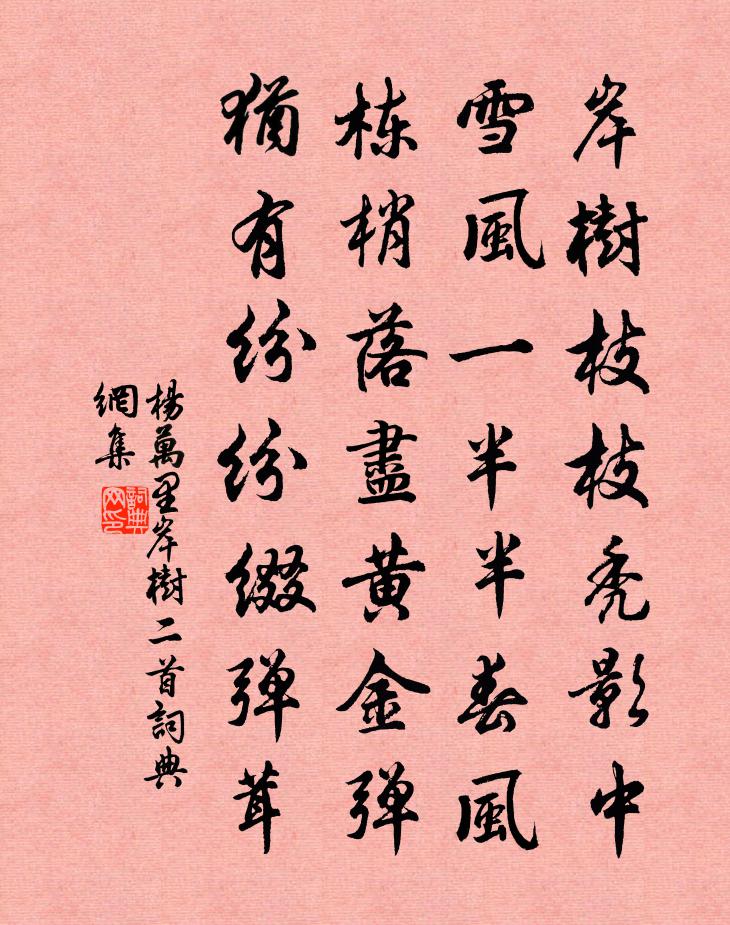 岸樹枝枝禿影中
雪風一半半春風
楝梢落盡黄金弹
猶有紛紛綴弹茸
楊萬里岸樹二首詞典
網集
詞典
网印